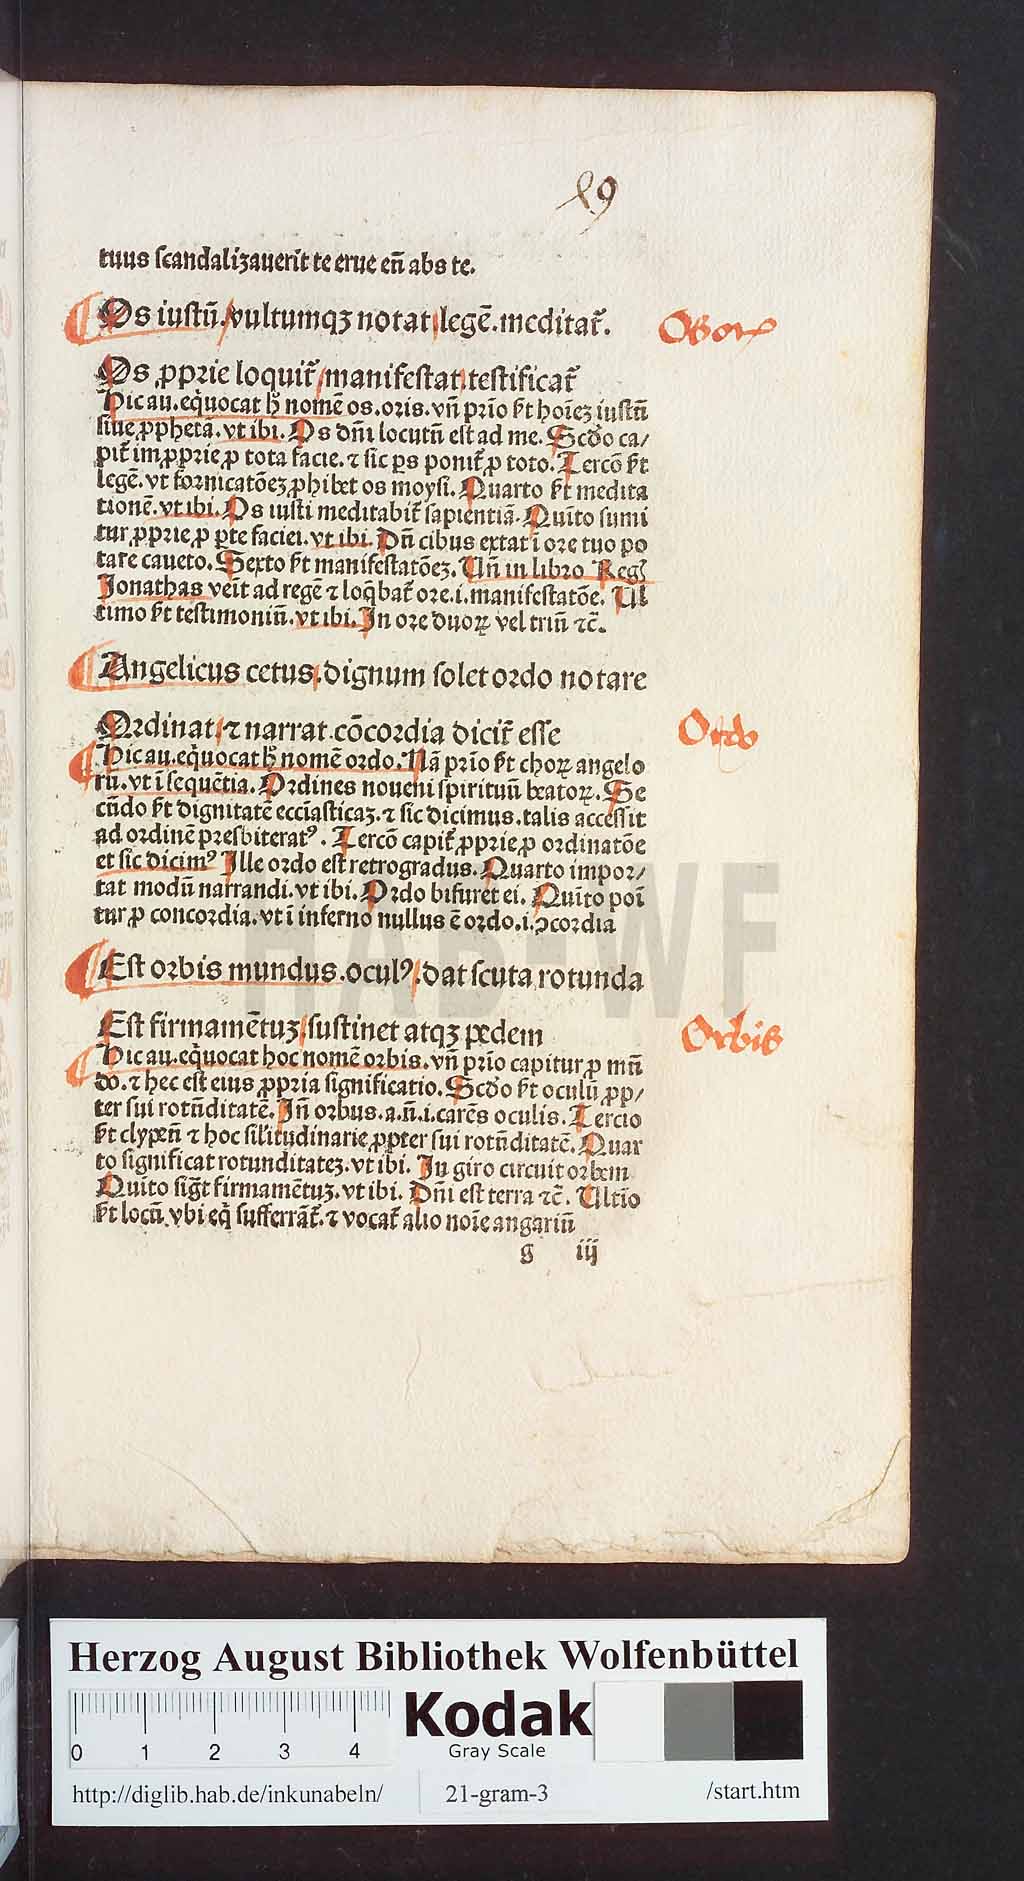 89
tuus scandalizauerit te erue eū abs te.
Os iustū. vultumqꝫ notat legē. meditat᷑.
Os oris
Os ꝓprie loquit᷑ manifestat testificat᷑
Hic au. eq̇uocat hͦ nomē os. oris. vn̄ prīo st hoīeꝫ iustū
siue ꝓphetā. vt ibi. Os dn̄i locutū est ad me. Scd̓o ca/
pit᷑ imꝓprie ꝓ tota facie. ⁊ sic ꝑs ponit᷑ ꝓ toto. Tercō st
legē. vt fornicatōeꝫ ꝓhibet os moysi. Quarto st medita
tionē. vt ibi. Os iusti meditabit᷑ sapientiā. Quīto sumi
tur ꝓprie ꝓ ꝑte faciei. vt ibi. Dū cibus extat ī ore tuo po
tare caueto. Sexto st manifestatōeꝫ. Un̄ in libro Regꝝ
Jonathas veīt ad regē ⁊ loq̄bat᷑ ore .i. manifestatōe. Ul
timo st testimoniū. vt ibi. In ore duoꝝ vel triū ⁊c̄.
Angelicus cetus. dignum solet ordo notare
Ordinat ⁊ narrat. cōcordia dicit᷑ esse
Ordo
Hic au. eq̇uocat hͦ nomē ordo. Nā prīo st choꝝ angelo
rū. vt ī sequētia. Ordines noueni spirituū beatoꝝ. Se
cūdo st dignitatē eccīasticaꝫ. ⁊ sic dicimus. talis accessit
ad ordinē presbiteratꝰ. Tercō capit᷑ ꝓprie ꝓ ordinatōe
et sic dicimꝰ Ille ordo est retrogradus. Quarto impor/
tat modū narrandi. vt ibi. Ordo bifuret ei. Quīto poī
tur ꝓ concordia. vt ī inferno nullus ē ordo .i. ꝯcordia
Est orbis mundus. oculꝰ. dat scuta rotunda
Est firmamētuꝫ. sustinet atqꝫ pedem
Orbis
Hic au. eq̇uocat hoc nomē orbis. vn̄ prīo capitur ꝓ mū
do. ⁊ hec est eius ꝓpria significatio. Scd̓o st oculū ꝓp/
ter sui rotūditatē. Jn̄ orbus .a.ū.i. carēs oculis. Tercio
st clypeū ⁊ hoc silitudinarie ꝓpter sui rotūditatē. Quar
to significat rotunditateꝫ. vt ibi. In giro circuit orbem
Quīto sigt̄ firmamētuꝫ. vt ibi. Dn̄i est terra ⁊c̄. Ultīo
st locū vbi eq̇ sufferrāt᷑. ⁊ vocat᷑ alio noīe angariū
g iij
HAB-WF
Herzog August Bibliothek Wolfenbüttel
0 1 2 3 4
Kodak
Gray Scale
http://diglib.hab.de/inkunabeln/ 21-gram-3 /start.htm